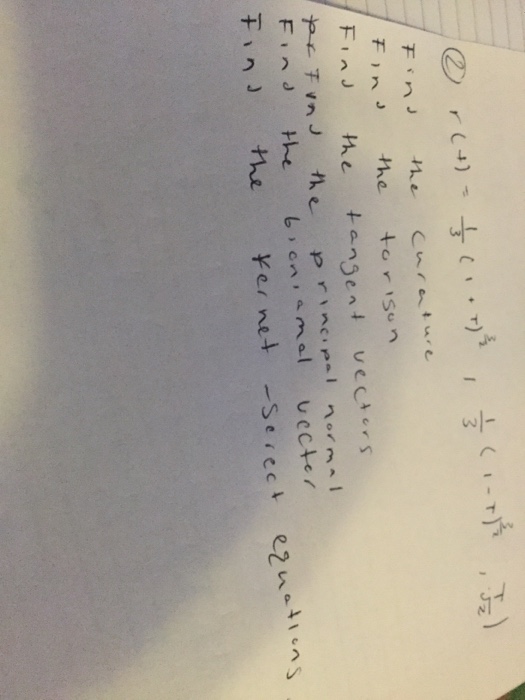 ② r(t) = 1/3 (1+T)^3/2 , 1/3 (1-T)^3/2 , T/√2)
Find the curature
Find the torison
Find the tangent vectors
Find the principal normal
Find the bioniamal vector
Find the Kernet-Serect equations.